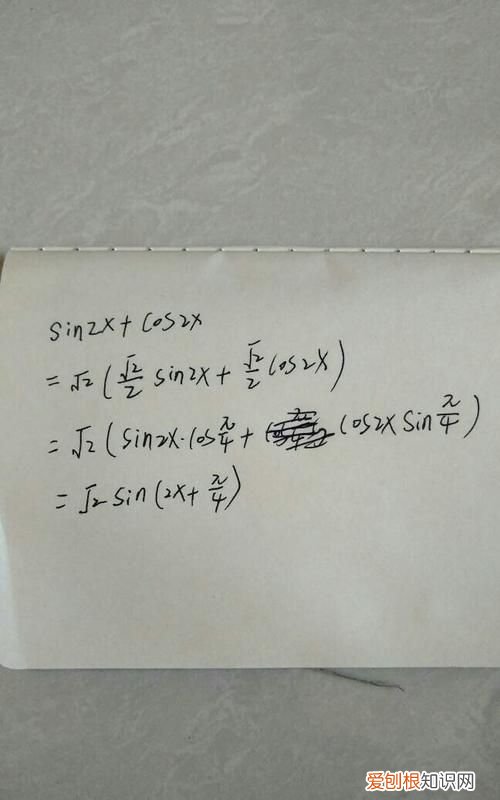 sin2x + cos2x
= √2 ( √2/2 sin2x + √2/2 cos2x )
= √2 ( sin2x·cos π/4 + cos2x sin π/4 )
= √2 sin (2x + π/4)
爱刨根知识网